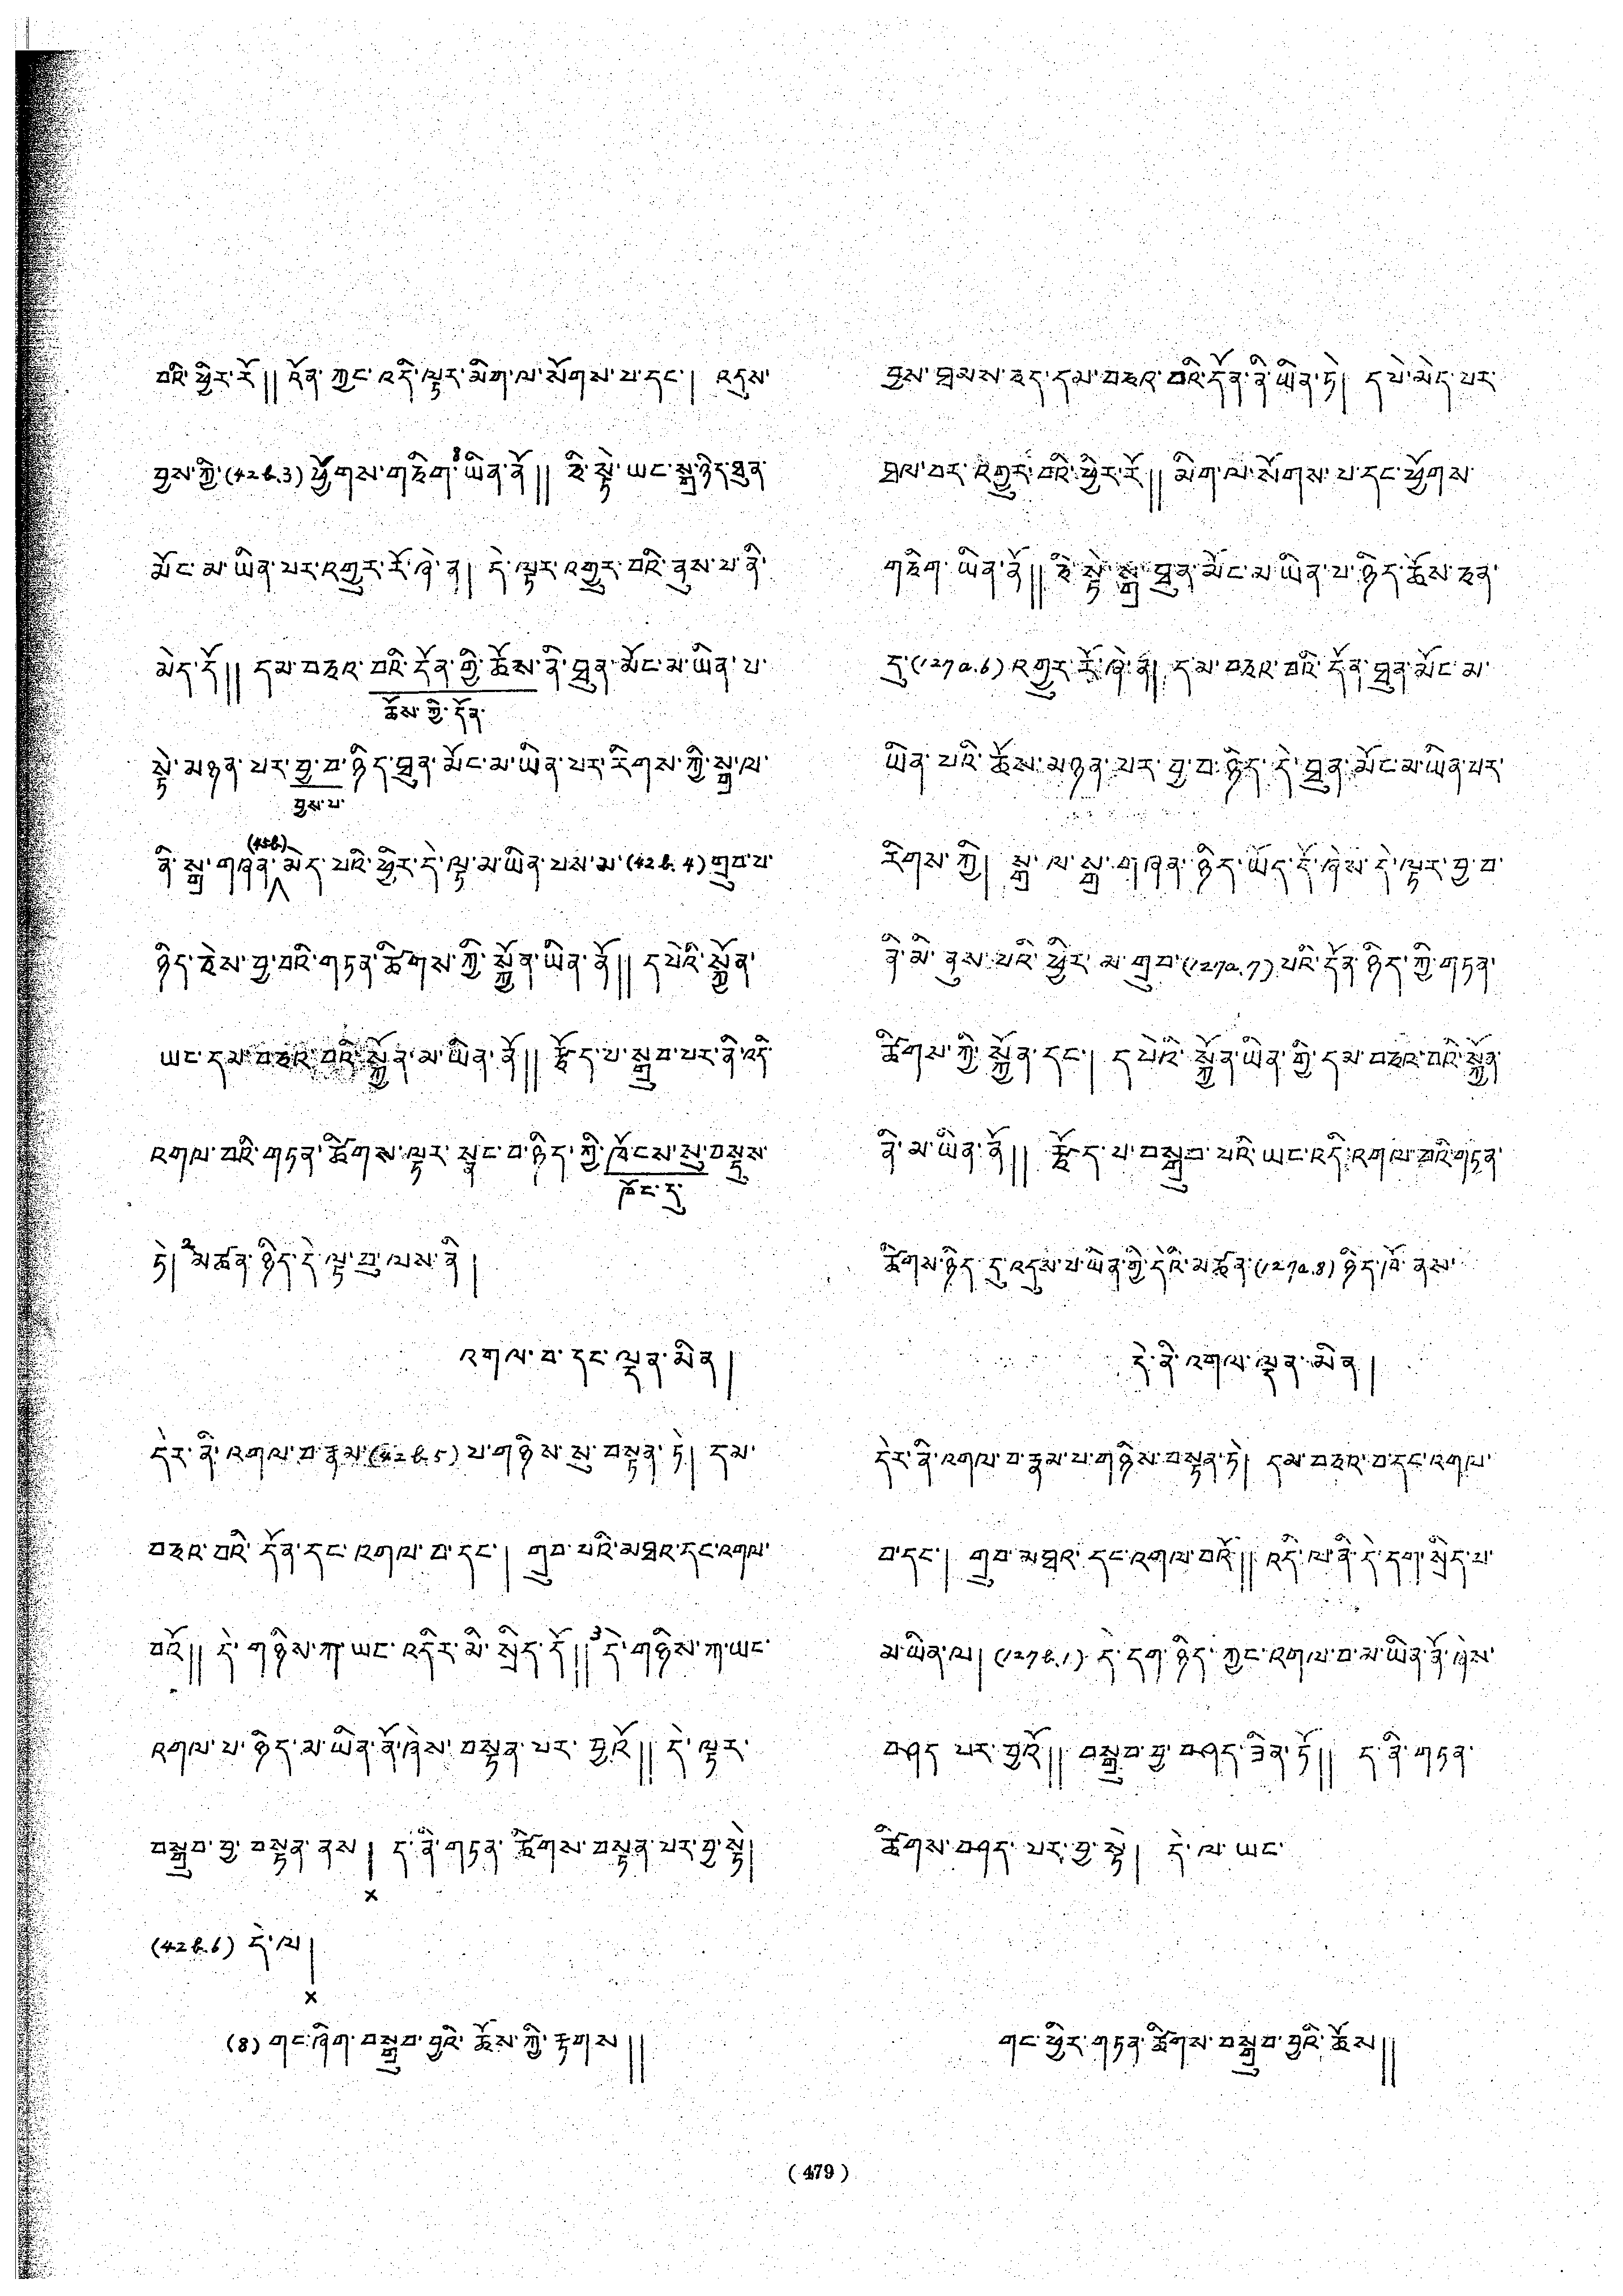 བའི་ཕྱིར་རོ།། འོན་ཀྱང་འདི་ལྟར་མིག་ལ་སོགས་པ་དང་། འདུས་
བྱས་ཀྱི་(42b.3)ཕྱོགས་གཅིག་ཡིན་ནོ།། ཅི་སྟེ་ཡང་སྒྲ་ཉིད་ཐུན་
མོང་མ་ཡིན་པར་འགྱུར་རོ་ཞེ་ན། དེ་ལྟར་འགྱུར་བའི་ནུས་པ་ནི་
མེད་དོ།། དམ་བཅའ་བའི་དོན་གྱི་ཆོས་ནི་ཐུན་མོང་མ་ཡིན་པ་
ཆོས་ཀྱི་དོན་
སྟེ་མཉན་པར་བྱ་བ་ཉིད་ཐུན་མོང་མ་ཡིན་པར་རིགས་ཀྱི་སྒྲ་ལ་
བྱས་པ་
(45b)
ནི་སྒྲ་གཞན་མེད་པའི་ཕྱིར་དེ་ལྟ་མ་ཡིན་པས་མ་(42b.4)གྲུབ་པ་
ཉིད་ཅེས་བྱ་བའི་གཏན་ཚིགས་ཀྱི་སྐྱོན་ཡིན་ནོ།། དཔེའི་སྐྱོན་
ཡང་དམ་བཅའ་བའི་སྐྱོན་མ་ཡིན་ནོ།། རྩོད་པ་སྒྲུབ་པར་ནི་འདི་
འགལ་བའི་གཏན་ཚིགས་ལྟར་སྣང་བ་ཉིད་ཀྱི་ཁོངས་སུ་བསྡུས་
ཁོང་དུ་
ཏེ། 2མཚན་ཉིད་དེ་ལྟ་བུ་ལས་ནི།
འགལ་བ་དང་ལྡན་མིན།
དེར་ནི་འགལ་བ་རྣམ་(42b.5)པ་གཉིས་སུ་བསྟན་ཏེ། དམ་
བཅའ་བའི་དོན་དང་འགལ་བ་དང་། གྲུབ་པའི་མཐའ་དང་འགལ་
བའོ།། དེ་གཉིས་ཀ་ཡང་འདིར་མི་སྲིད་དོ།།3དེ་གཉིས་ཀ་ཡང་
འགལ་པ་ཉིད་མ་ཡིན་ནོ་ཞེས་བསྟན་པར་བྱའོ།། དེ་ལྟར་
བསྒྲུབ་བྱ་བསྟན་ནས། ད་ནི་གཏན་ཚིགས་བསྟན་པར་བྱ་སྟེ།
×
(42b.6) དེ་ལ།
×
(8) གང་ཞིག་བསྒྲུབ་བྱའི་ཆོས་ཀྱི་རྟགས།།
བྱས་ཐམས་ཅད་དམ་བཅའ་བའི་དོན་ནི་ཡིན་ཏེ། དཔེ་མེད་པར་
ཐལ་བར་འགྱུར་བའི་ཕྱིར་རོ།། མིག་ལ་སོགས་པ་དང་ཕྱོགས་
གཅིག་ཡིན་ནོ།། ཅི་སྟེ་སྒྲ་ཐུན་མོང་མ་ཡིན་པ་ཉིད་ཆོས་ཅན་
དུ་(127a.6)འགྱུར་རོ་ཞེ་ན། དམ་བཅའ་བའི་དོན་ཐུན་མོང་མ་
ཡིན་པའི་ཆོས་མཉན་པར་བྱ་བ་ཉིད་དེ་ཐུན་མོང་མ་ཡིན་པར་
རིགས་ཀྱི། སྒྲ་ལ་སྒྲ་གཞན་ཉིད་ཡོད་དོ་ཞེས་དེ་ལྟར་བྱ་བ་
ནི་མི་ནུས་པའི་ཕྱིར་མ་གྲུབ་(127a.7)པའི་དོན་ཉིད་ཀྱི་གཏན་
ཚིགས་ཀྱི་སྐྱོན་དང་། དཔེའི་སྐྱོན་ཡིན་གྱི་དམ་བཅའ་བའི་སྐྱོན་
ནི་མ་ཡིན་ནོ།། རྩོད་པ་བསྒྲུབ་པའི་ཡང་འདི་འགལ་བའི་གཏན་
ཚིགས་ཉིད་དུ་འདུས་པ་ཡིན་གྱི་དེའི་མཚན་(127a.8)ཉིད་ཁོ་ནས་
དེ་ནི་འགལ་ལྡན་མིན།
དེར་ནི་འགལ་བ་རྣམ་པ་གཉིས་བསྟན་ཏེ། དམ་བཅའ་བ་དང་འགལ་
བ་དང་། གྲུབ་མཐའ་དང་འགལ་བའོ།། འདི་ལ་ནི་དེ་དག་སྲིད་པ་
མ་ཡིན་ལ། (127b.1) དེ་དག་ཉིད་ཀྱང་འགལ་བ་མ་ཡིན་ནོ་ཞེས་
བཤད་པར་བྱའོ།། བསྒྲུབ་བྱ་བཤད་ཟིན་ཏོ།། ད་ནི་གཏན་
ཚིགས་བཤད་པར་བྱ་སྟེ། དེ་ལ་ཡང་
གང་ཕྱིར་གཏན་ཚིགས་བསྒྲུབ་བྱའི་ཆོས།།
(479)